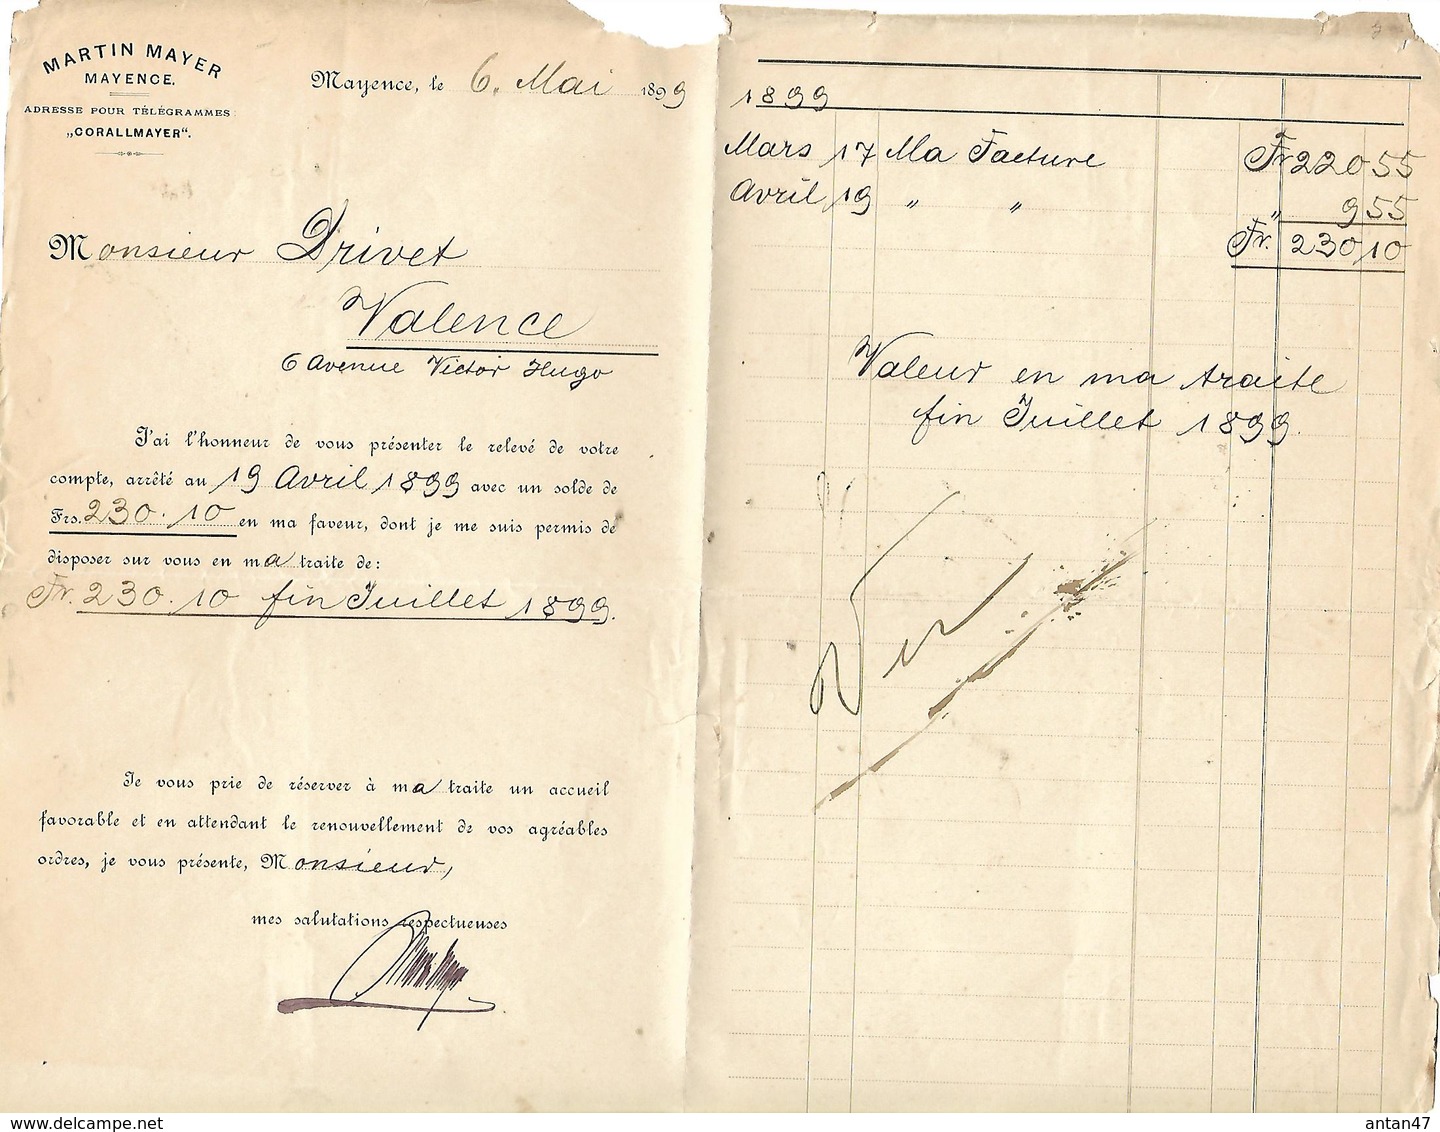 MARTIN MAYER
MAYENCE.
ADRESSE POUR TÉLÉGRAMMES:
„CORALLMAYER“.
Mayence, le 6. Mai 1899
Monsieur Drivet
Valence
6 Avenue Victor Hugo
J'ai l'honneur de vous présenter le relevé de votre
compte, arrêté au 19 Avril 1899 avec un solde de
Frs. 230.10 en ma faveur, dont je me suis permis de
disposer sur vous en ma traite de:
Fr. 230.10 fin Juillet 1899.
Je vous prie de réserver à ma traite un accueil
favorable et en attendant le renouvellement de vos agréables
ordres, je vous présente, Monsieur,
mes salutations respectueuses
1899
Mars 17 Ma Facture Fr 220 55
Avril 19 " " " 9 55
Fr. 230 10
Valeur en ma traite
fin Juillet 1899.
antan47